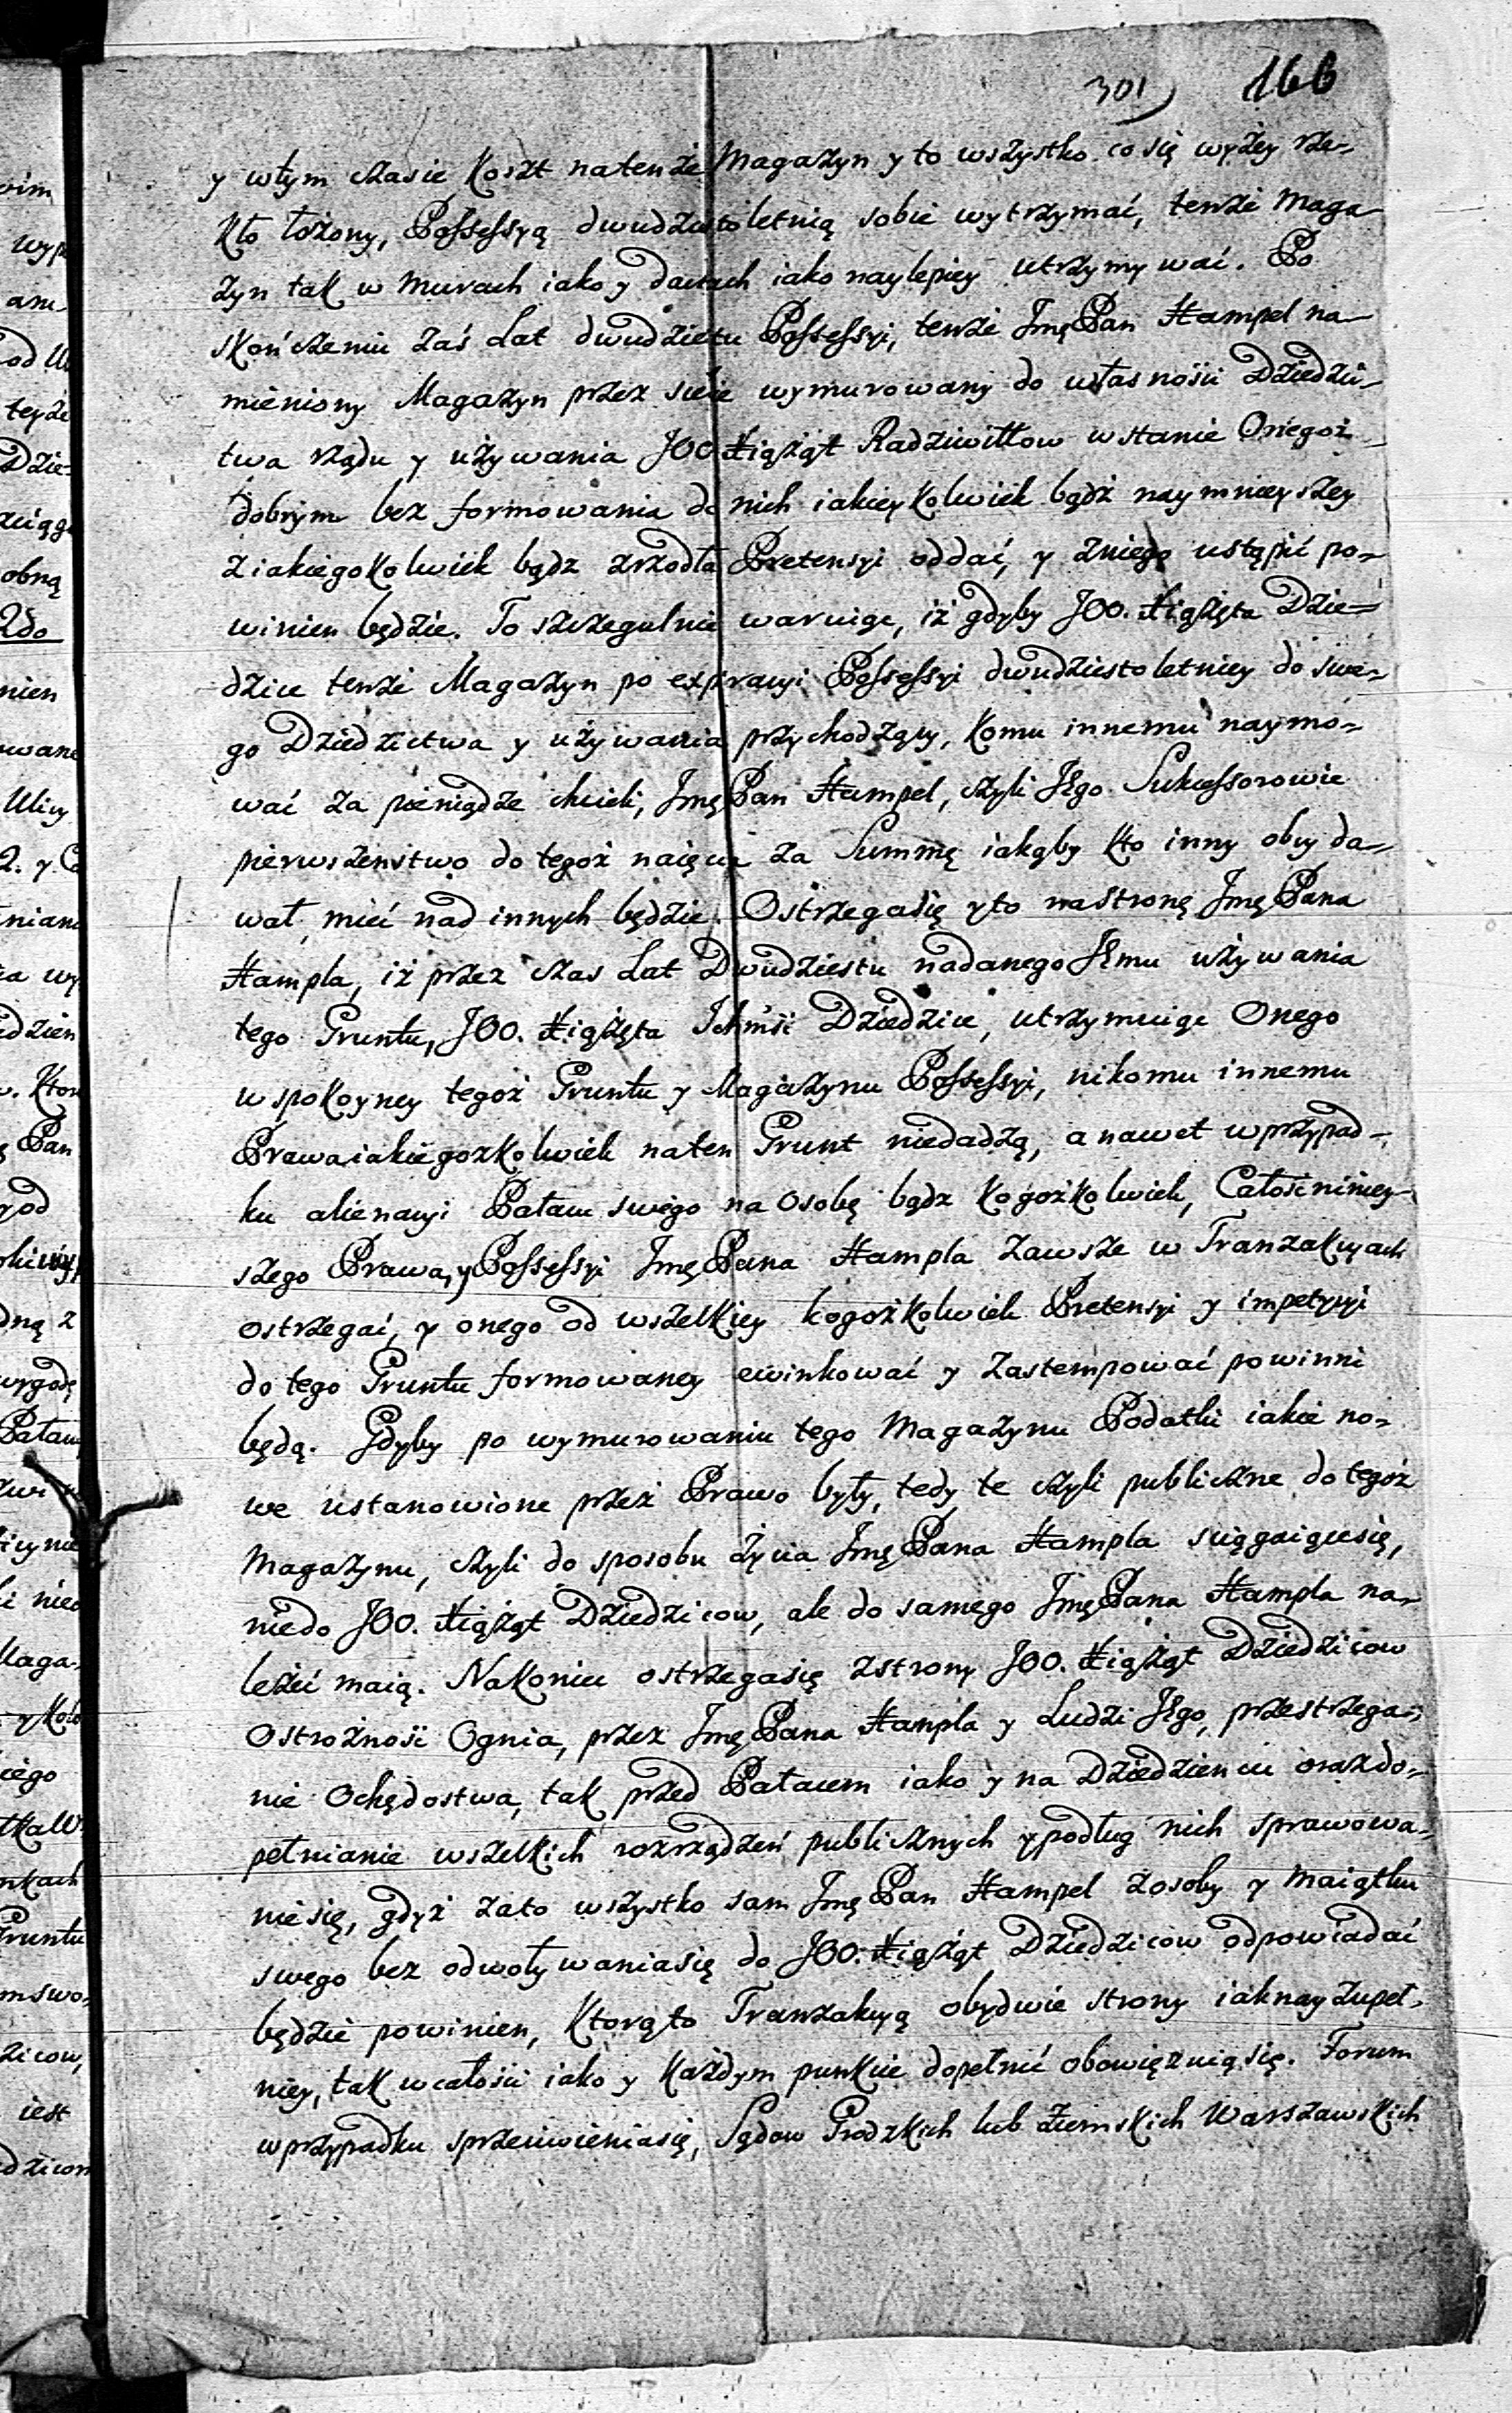 301) 166
y wtym czasie koszt natenże Magazyn y to wszystko co się wyżey rze-
kło łożony, Possessyą dwudziestoletnią sobie wytrzymać, tenże Maga-
zyn tak w Murach iako y dachach iako naylepiey utrzymywać. Po
skończeniu zaś Lat dwudziestu Possessyi, tenże Jmę Pan Hampel na-
mieniony Magazyn przez siebie wymurowany do własności Dziedzic-
twa rządu y używania JOO. Xiążąt Radziwiłłow wstanie Onegoż
dobrym bez formowania do nich iakieykolwiek bądź naymnieyszey
ziakiegokolwiek bądz zrzodła Pretensyi oddać, y zniego ustąpić po-
winien będzie. To szczegulnie waruiąc, iż gdyby JOO. Xiążęta Dzie-
dzice tenże Magazyn po expiracyi Possessyi dwudziestoletniey do swe-
go Dziedzictwa y używania przychodzący, komu innemu naymo-
wać za pieniądze chcieli, Jmę Pan Hampel, czyli Jego Sukcessorowie
pierwszenstwo do tegoż naięcia za Summę iakąby kto inny obcy da-
wał, mieć nad innych będzie. Ostrzegasię yto nastronę Jmę Pana
Hampla, iż przez czas Lat Dwudziestu nadanego Jemu używania
tego Gruntu, JOO. Xiążęta Ichmść Dziedzice, utrzymuiąc Onego
wspokoyney tegoż Gruntu y Magazynu Possessyi, nikomu innemu
Prawa iakiegożkolwiek naten Grunt niedadzą, a nawet wprzypad-
ku alienacyi Pałacu swego na Osobę bądz kogożkolwiek, Całość niniey-
szego Prawa, y Possessyi Jmę Pana Hampla zawsze w Tranzakcyach
ostrzegać, y onego od wszelkiey kogożkolwiek Pretensyi y impetycyi
do tego Gruntu formowaney ewinkować y zastempować powinni
będą. Gdyby po wymurowaniu tego Magazynu Podatki iakie no-
we ustanowione przez Prawo były, tedy te czyli publiczne do tegoż
Magazynu, czyli do sposobu życia Jmę Pana Hampla sciągaiącesię,
niedo JOO. Xiążąt Dziedzicow, ale do samego Jmę Pana Hampla na-
leżeć maią. Nakoniec ostrzegasię zstrony JOO. Xiążąt Dziedzicow
Ostrożność Ognia, przez Jmę Pana Hampla y Ludzi Jego, przestrzega-
nie Ochędostwa, tak przed Pałacem iako y na Dziedzieńcu orazdo-
pełnianie wszelkich rozrządzeń publicznych ypodług nich sprawowa-
niesię, gdyż zato wszystko sam Jmę Pan Hampel zosoby y Maiątku
swego bez odwoływaniasię do JOO. Xiążąt Dziedzicow odpowiadać
będzie powinien, Ktorąto Tranzakcyą obydwie strony iaknayzupeł-
niey, tak wcałości iako y każdym punkcie dopełnić obowięzuiąsię. Forum
wprzypadku sprzeciwieniasię, Sądow Grodzkich lub Ziemskich Warszawskich